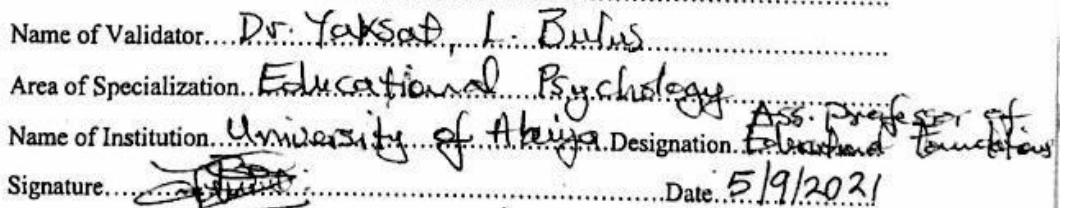 Name of Validator....Dr. Yaksat, L. Bulus
Area of Specialization..Educational Psychology
Ass. Professor of
Name of Institution..University of Abuja.Designation..Educational Foundations
Signature..............................Date.5/9/2021